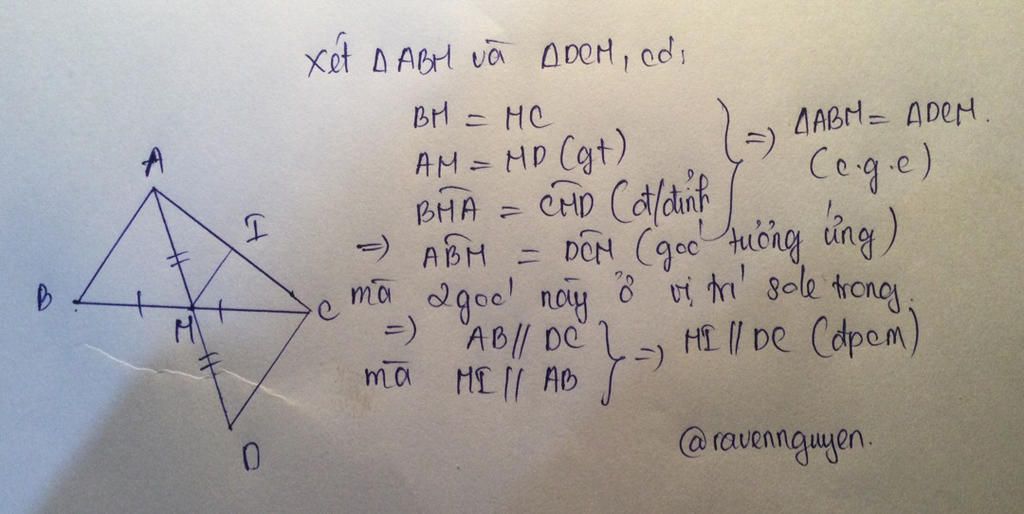 Xét ΔABM và ΔDCM, có:
BM = MC
AM = MD (gt)
BMA = CMD (đ/đỉnh
} => ΔABM = ΔDCM.
(c.g.c)
=> ABM = DCM (góc tưởng ứng)
mà 2góc này ở vị trí sole trong.
=> AB // DC
mà MI // AB
} => MI // DC (đpcm)
A
I
B
M
C
D
@ravennguyen.